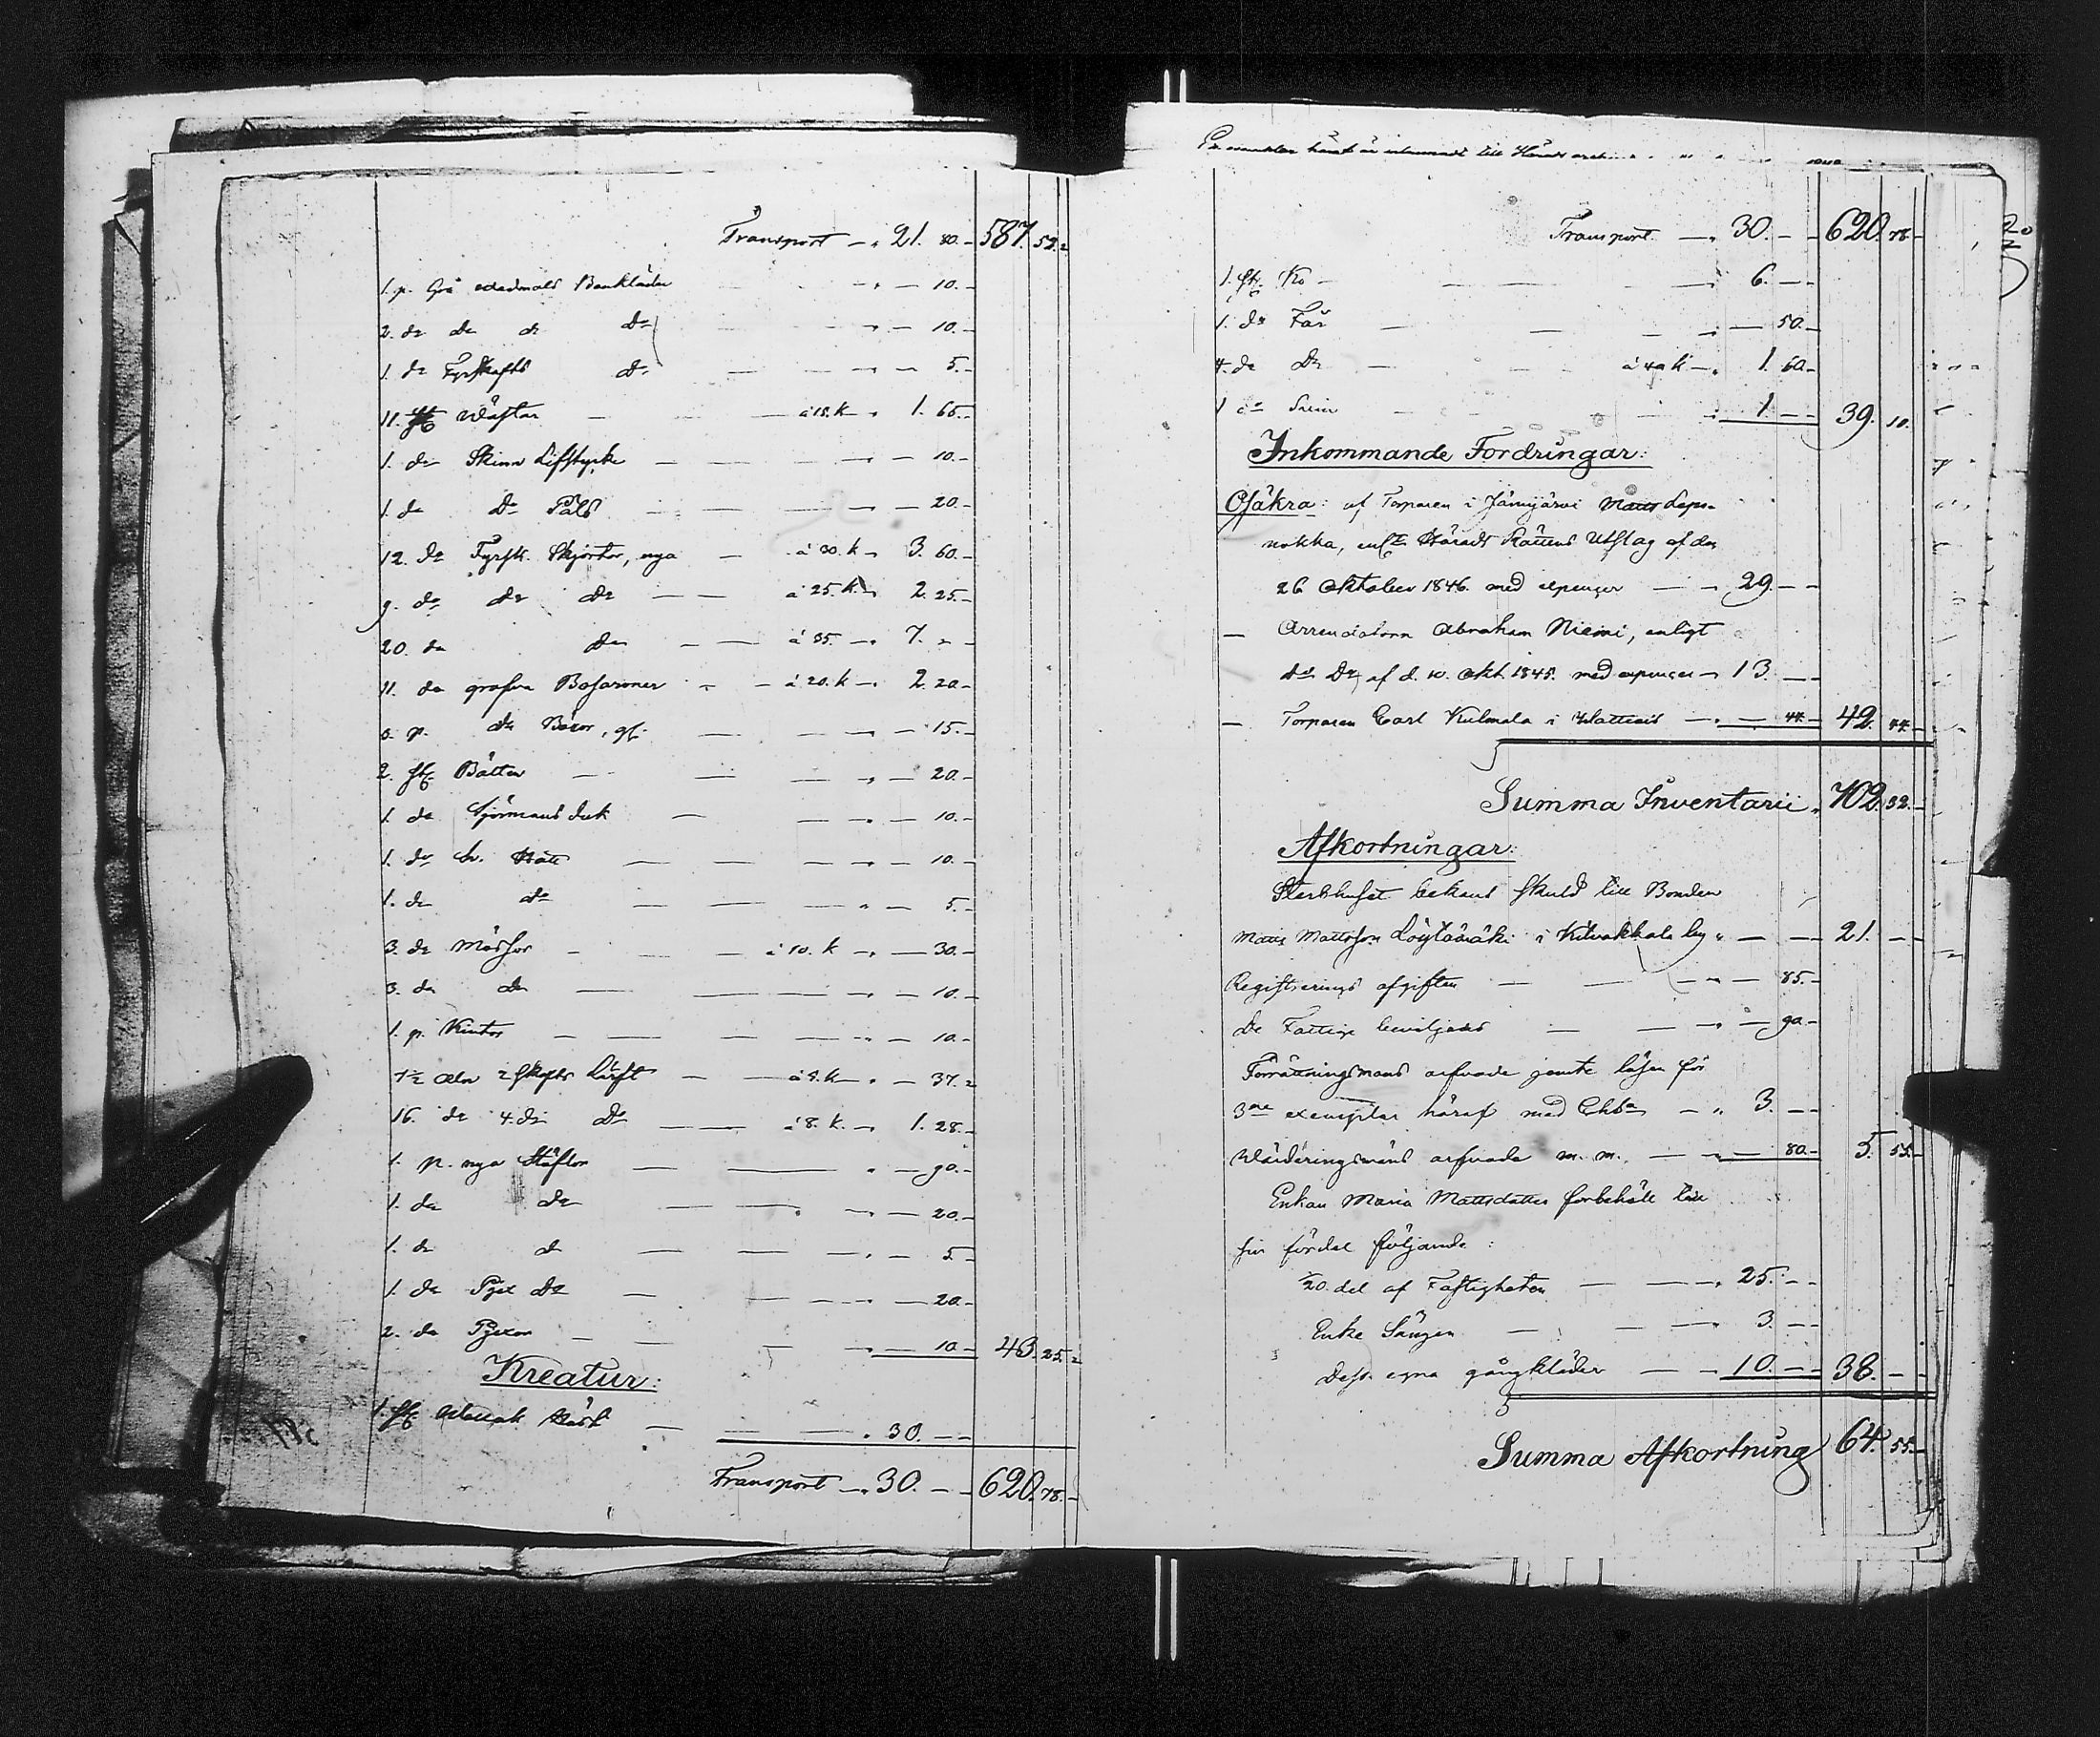 Transport — " 21. 80. — 587. 52. 2
1. p. Grå wadmals Benkläder — " — 10. —
2. do do do Do — " — 10. —
1. do Fyrskafts Do — — " — 5. —
11. st. Wästar — — à 15. k — " 1. 65. —
1. do Skinn Lifstycke — — — " — 10. —
1. do Do Päls — — " — 20. —
12. do Fyrsk. Skjortor, nya — à 30. k — " 3. 60. —
9. do do do — — à 25. k. — " 2. 25. —
20. do do — — à 35. — " 7. " —
11. do grofva — à 20. k — " 2. 20. —
p. do — — " — 15. —
2. st. Bälten — — — " — 20. —
1. do duk — — " — 10. —
1. do Hatt — — — " — 10. —
1. do do — — — " — 5. —
3. do Mössor — — à 10. k — " — 30. —
3. do do — — — — " — 10. —
1. p. Kintor — — — — " — 10. —
Aln 2 skafts Lärft — — " — 37. 2
16. do 4. do Do — — à 8. k. — " 1. 28. —
1. p. nya Stöflor — — " — 90. —
1. do do — — " — 20. —
1. do do — — — " — 5 —
1. do Do — — — " — 20. —
2. do — — — " — 10 — 43. 25. 2
Kreatur:
1. st. Wallak Häst — — — " 30. — —
Transport — " 30. — — 620. 78. —
Transport — " 30. — — 620. 78 —
1. st. Ko — — — " 6. — —
1. do Får — — " — 50. —
4. do Do — à 40 k — " 1. 60. —
1 do — " 1 — — 39. 10.
Inkommande Fordringar:
Osäkra: af Torparen i Jämijärvi Matts Lepo-
nokka, enl. Härads Rättens Utslag af den
26 Oktober 1846. med expenser — " 29. — —
— Arrendatorn Abraham Niemi, enligt
do Do af d. 10. Okt. 1845. med expenser — 13. — —
— Torparen Carl Kulmala i — " — 44. — 42. 44. —
Summa Inventarii " 702. 32. —
Afkortningar:
Sterbhuset bekant skuld till Bonden
Matts Mattsson Löytömäki i Kilvakkala by " — — 21. — —
Registrerings afgiften — — " — 85. —
De Fattige beviljades — — " — 90 —
Förrättningsmans arfvode jemte lösen för
3ne exemplar häraf med Chta — " 3. — —
Wärderingsmäns arfvode m. m. — " — 80. — 5. 55. —
Enkan Maria Mattsdotter förbehöll till
sin fördel följande:
1/20. del af Fastigheten — — " 25. — —
Enke Sängen — — " 3. — —
Dess egna gångkläder — — 10. — — 38. — —
Summa Afkortning 64. 55. —